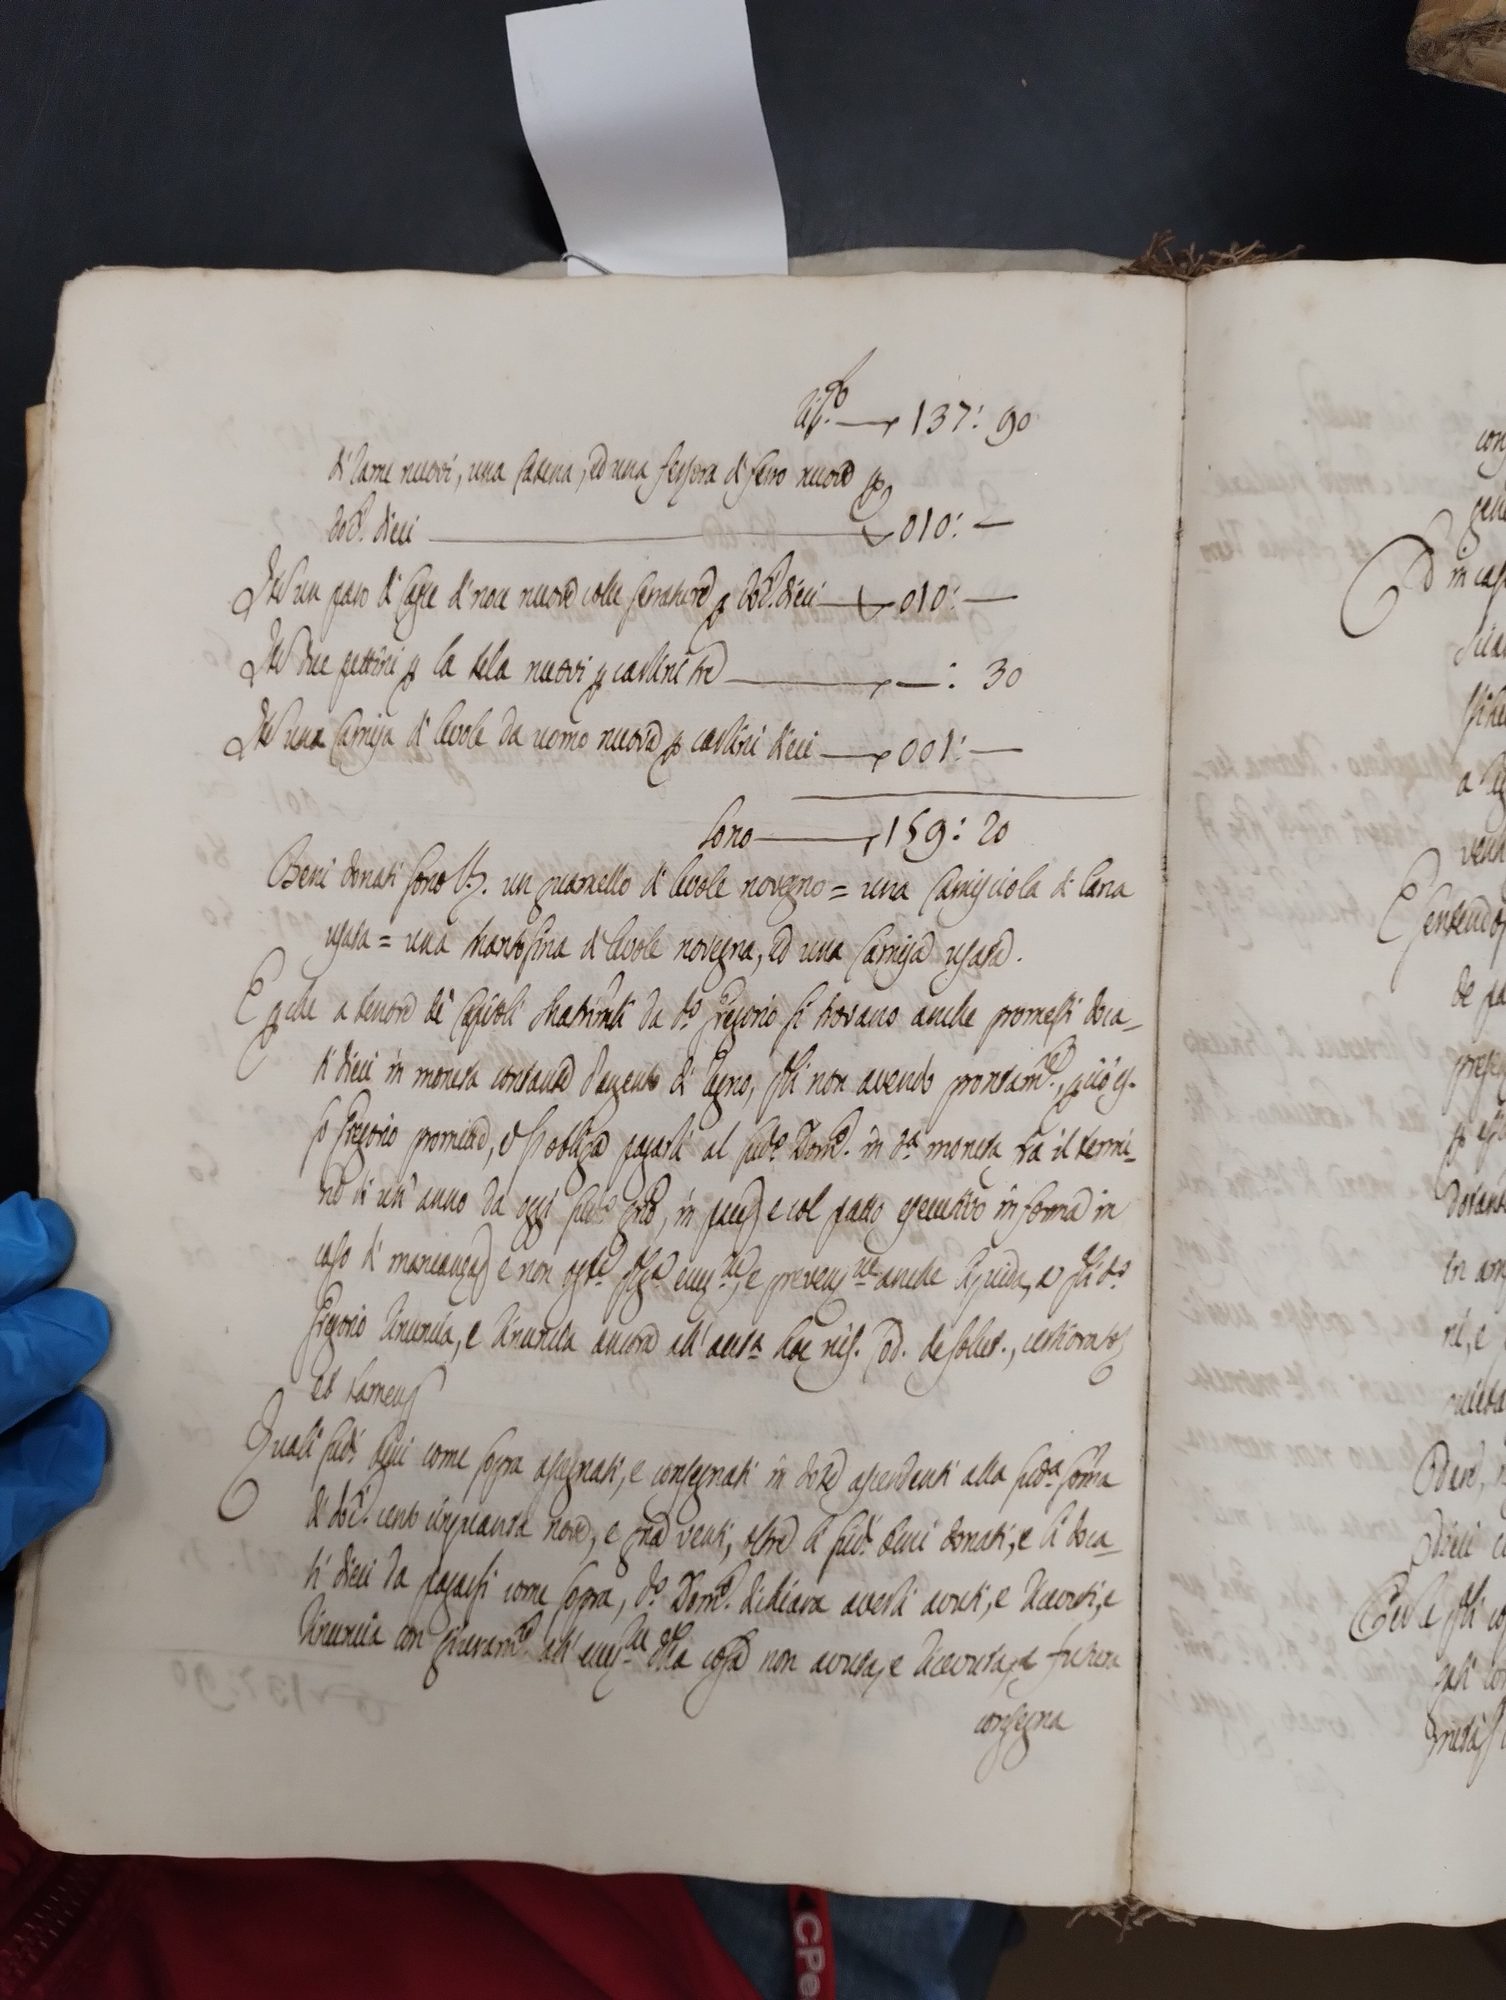 137: 90
di rame nuovi, una catena, ed una fressora di ferro nuove p
doc.ti dieci 010: —
Ite un paro di casse di noce nuove colle serrature p doc.ti dieci 010: —
Ite due pettini p la tela nuovi p carlini tre — : 30
Ite una camisa di levole da uomo nuova p carlini dieci 001: —
Sono 159: 20
Beni donati sono Vz. un guarnello di levole novegno = una camisciola di lana
usata = una mantesina di levole novegna, ed una camisa usata.
E perche a tenore de Capitoli Matrim.li da d.o Gregorio si trovano anche promessi doca-
ti dieci in moneta contante d'argento di Regno, q.li non avendo prontam.e, p ciò es-
so Gregorio promette, e si obliga pagarli al sud.o Dom.co in d.a moneta frà il termi-
ne di un' anno da oggi pred.o in pace, e col patto esecutivo in forma in
caso di mancanza e non ost.e q.ls.a ecc.ne e prevenz.ne anche liquida, a q.li d.o
Gregorio rinuncia, e rinuncia ancora all' aut.a hac nis. Cod. de solut.,
et tameus
Quali sud.i beni come sopra assegnati, e consegnati in dote ascendenti alla sud.a soma
di doc.ti cento cinquanta nove, e grã venti, oltre li sud.i beni donati, e li doca-
ti dieci da pagarsi come sopra, d.o Dom.co dichiara averli avuti, e ricevuti, e
rinuncia con giuram.to all' ecc.ne della cosa non avuta, e ricevuta, e futura
consegna
CPe